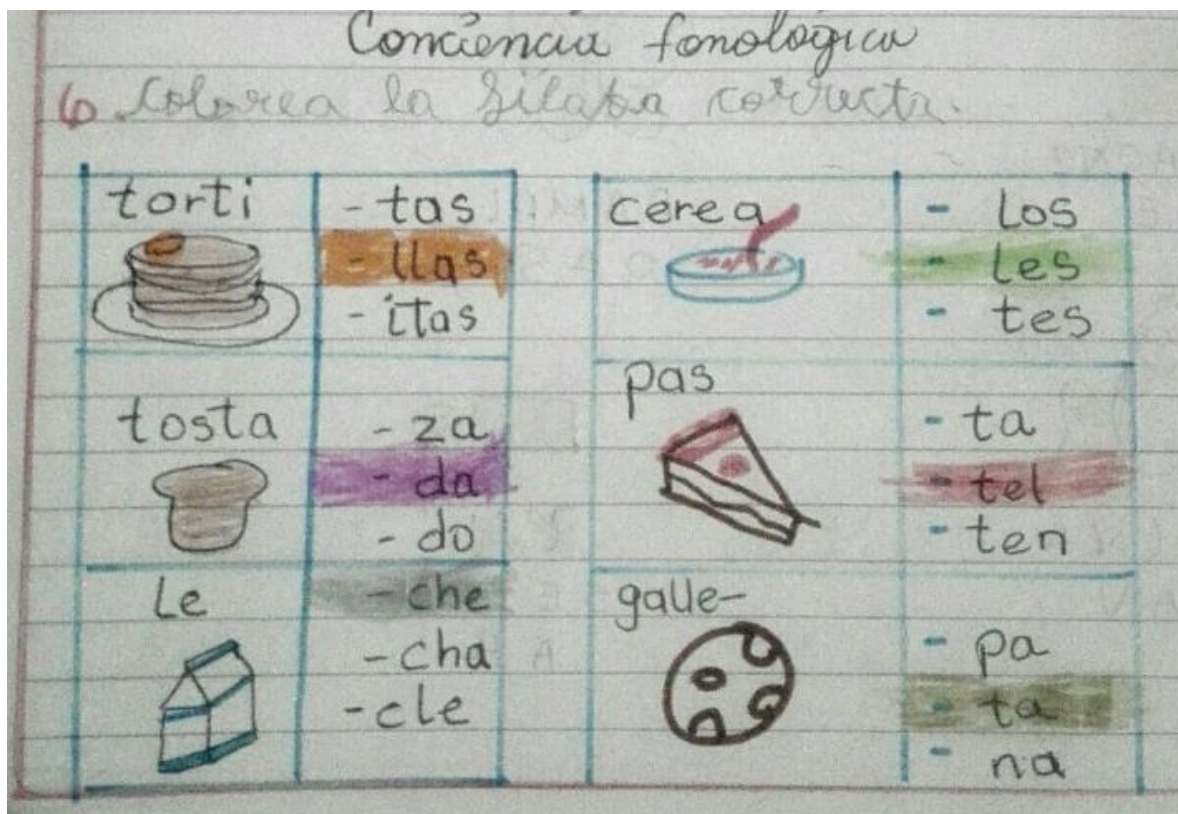 Conciencia fonológica
6 Colorea la sílaba correcta.
torti
- tas
- llas
- itas
tosta
- za
- da
- do
le
- che
- cha
- cle
cerea
- los
- les
- tes
pas
- ta
- tel
- ten
galle-
- pa
- ta
- na